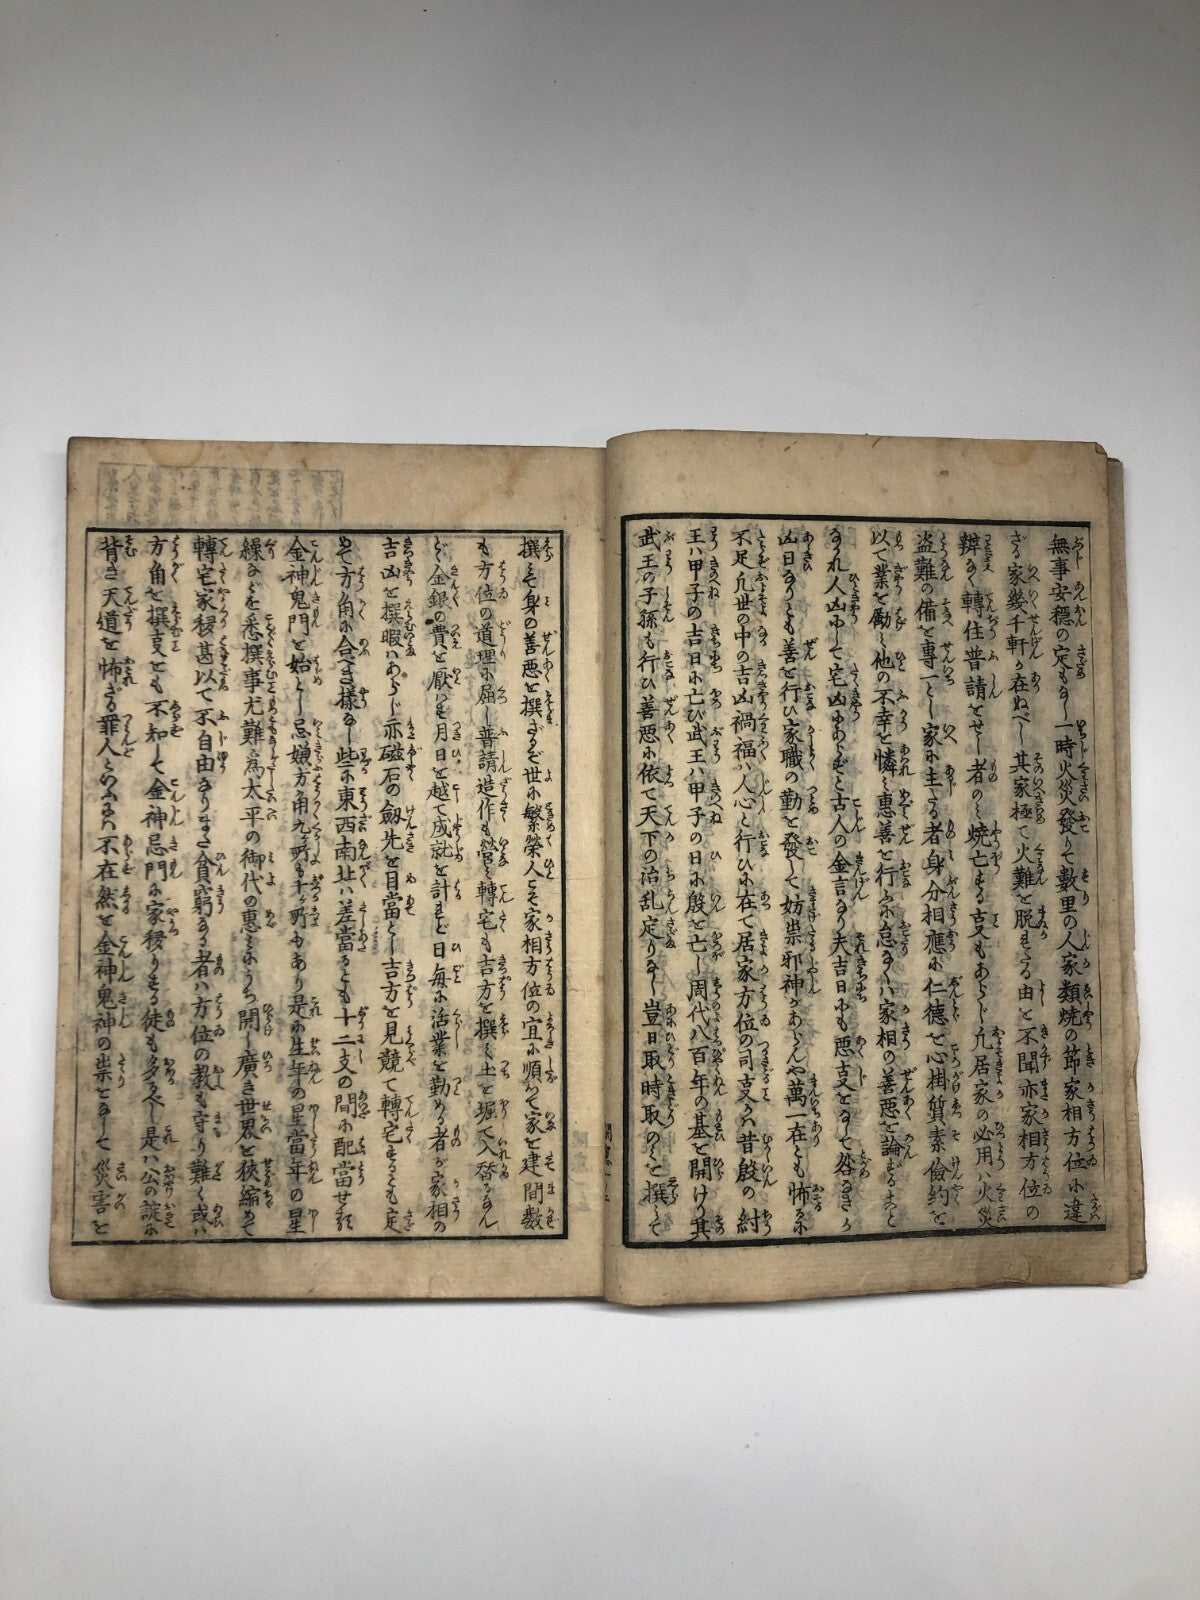 無事安穏の定もなし一時火災発りて數里の人家類焼の節家相方位に違
ざる家幾千軒か在ぬべし其家極て火難を脱れたる由を不聞亦家相方位の
辨なく轉住普請をせし者のミ焼亡する亊もあらじ凡居家の必用ハ火災
盗難の備を専一とし家に主たる者身分相應に仁徳を心掛質素儉約を
以て業を勵ミ他の不幸を憐ミ惠善を行ふに怠なくハ家相の善悪を論ずること
なかれ人凶にして宅凶にあらずと古人の金言なり夫吉日にも悪亊をなして咎なきか
凶日なりとも善を行ひ家職の勤を發して妨祟邪神があらんや萬一在とも怖るに
不足凡世の中の吉凶禍福ハ人心と行ひに在て居家方位の司亊かハ昔殷の紂
王ハ甲子の吉日に亡び武王ハ甲子の日に殷を亡し周代八百年の基を開けり其
武王の子孫も行ひ善悪に依て天下の治乱定りなし豈日取時取のミを撰ミて
撰ミそ身の善悪を撰ざるぞ世に繁榮人とそ家相方位の宜に順ひて家を建間數
も方位の道理に屈し普請造作も營ミ轉宅も吉方を撰ミ土を堀て入替るなん
ど金銀の費を厭ハず月日を越て成就を計れど日毎に活業を勤める者が家相の
吉凶を撰暇ハあらじ亦磁石の劔先を目當とし吉方を見競て轉宅するとも定
めて方角に合べき様なし些に東西南北ハ差當るとも十二支の間に配當せず
金神鬼門を始とし忌嫌方角九ヶ所も十ヶ所もあり是に生年の星當年の星
繰なども悉撰事尤難し為太平の御代の惠ミにうち開し廣き世界を狹縮めて
轉宅家移甚以て不自由なりまた貧窮なる者ハ方位の教も守り難く或ハ
方角を撰亊とも不知して金神忌門に家移りする徒も多かるべし是ハ公の掟に
背き天道を怖ざる罪人といふにハ不在然を金神鬼神の祟をなして災害を